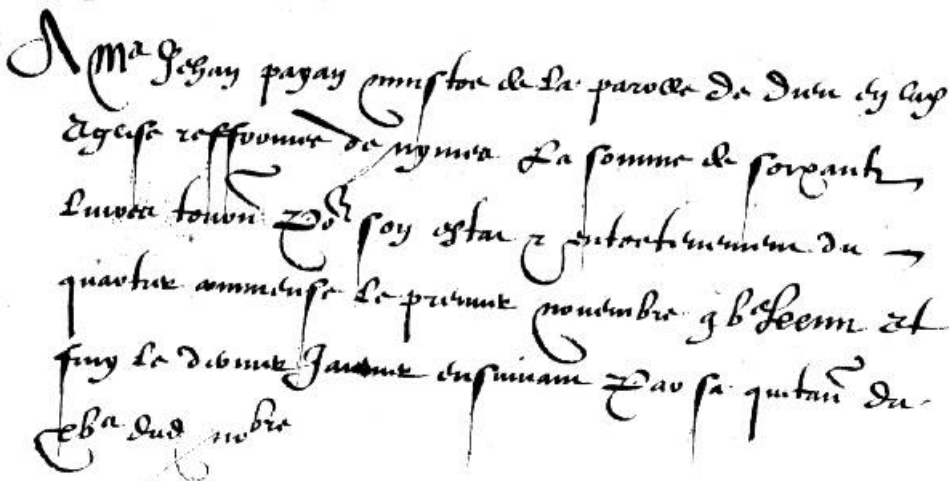 A Me Jehan payan ministre de la parolle de dieu en lad
Eglise refformee de nymes La somme de soixante
Livres tourn Po^r son estat et entretenement du
quartier commense le premier novembre
finy le dernier Janvier ensuivant Par sa quitan du
xv^e dud no^bre